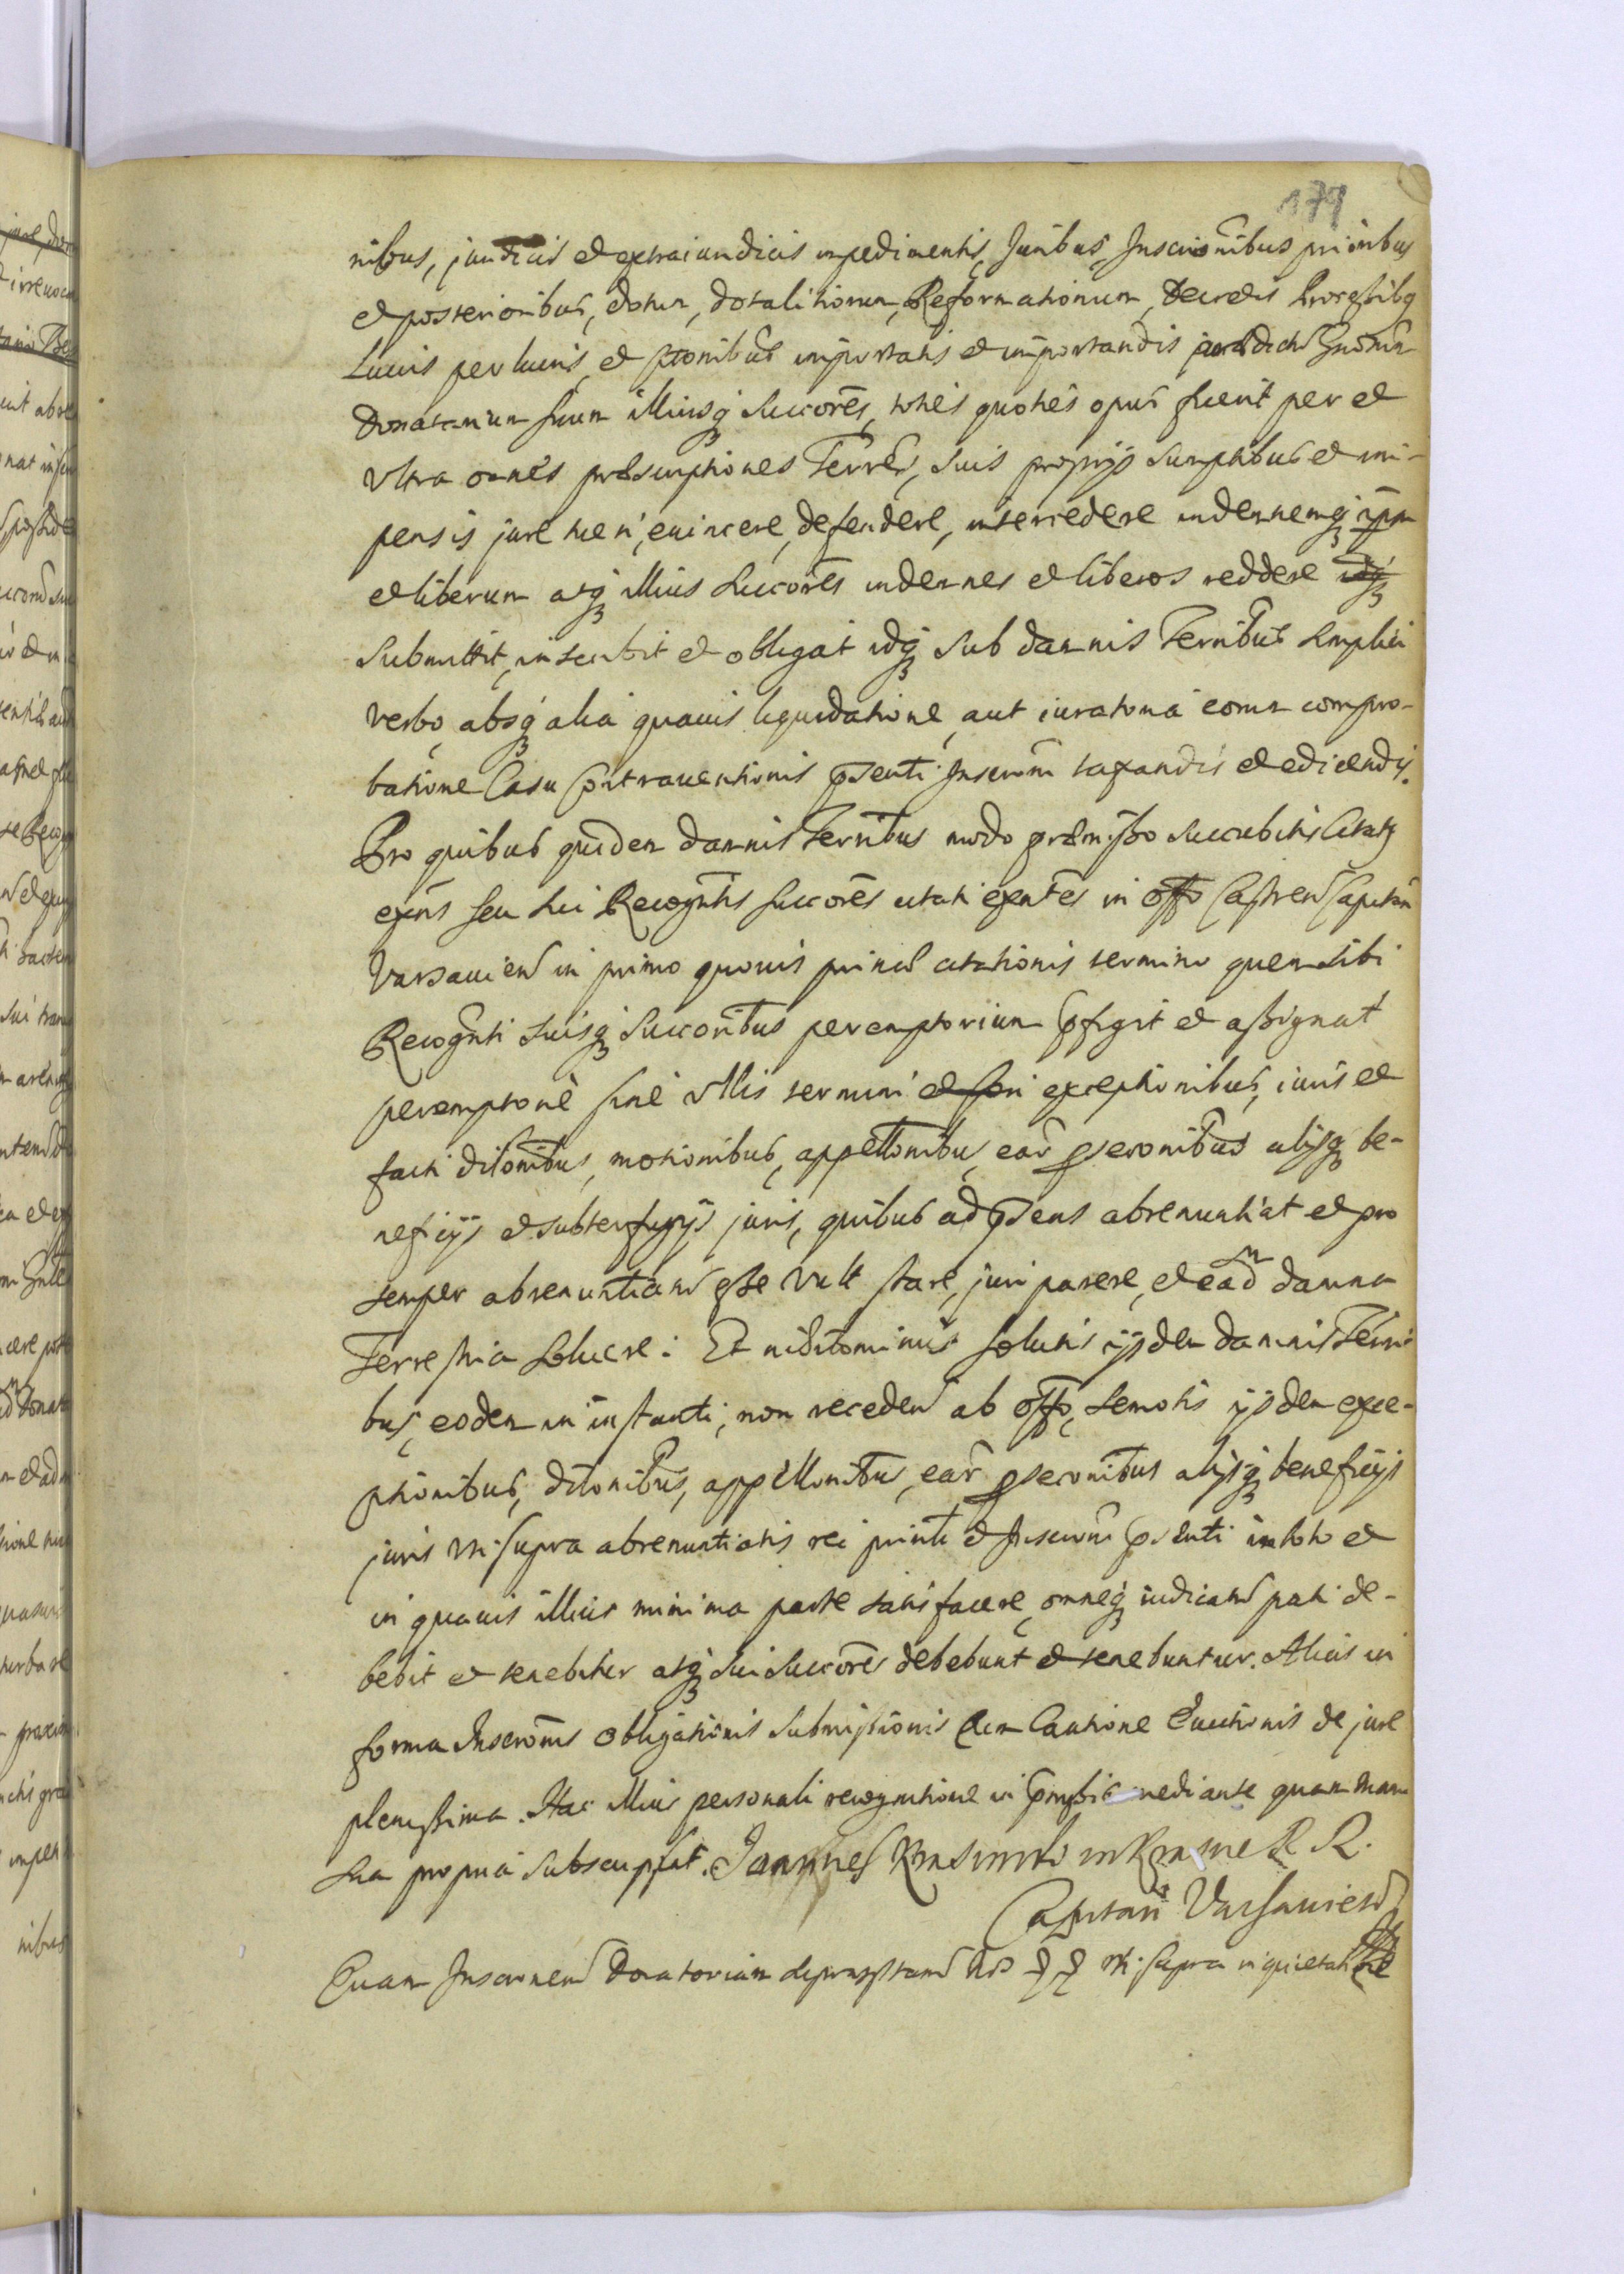 179
nibus, juridicis et extraiuridicis impedimentis, Juribus, Inscrionibus prioribus
et posterioribus, dotum, dotalitiorum, Reformationum, Decretis Processibq
Lucris per lucris, et ptionibus importatis et importandis Gnosum
Donatarium suum illiusq Succores, toties quoties opus fuerit per et
Vltra omnes præscriptiones Terres, suis proprijs sumptibus et im-
pensis jure tueri, euincere, defendere, intercedere indemnemq ipm
et liberum atq illius Succores indemnes et liberos reddere
Submittit, inscribit et obligat idq sub damnis Terribus simplici
verbo, absq alia quauis liquidatione, aut iuratoria eorum compro-
batione Casu Contrauentionis pnti Inscroni taxandis et edicendis.
Pro quibus quidem damnis Terribus modo præmisso succubitis Citatq
exns seu sui Recogntis succores citati exntes in offo Castren Capitan
Varsauien in primo quouis prinis citationis termino quem sibi
Recognti suisq Succoribus peremptorium pfigit et assignat
peremptorie sine vllis termini et fori exceptionibus, iuris et
facti dilonibus, motionibus, appellonibus, ear pseconibus alijsq be-
neficijs et subterfugijs juris, quibus ad psens abrenuntiat et pro
semper abrenuntiam esse vult stare, juri parere, et ead m damna
Terrestria soluere: Et nihilominus solutis ijsdem damnis Terri-
bus, eodem in instanti, non receden ab offo, semotis ijsdem exce-
ptionibus, dilonibus, appellonibus, ear pseconibus alijsq beneficijs
juris vti supra abrenuntiatis rei printi et Inscroni psenti in toto et
in quauis illius minima parte satisfacere, omneq iudicatu pati de-
bebit et tenebitur atq sui succores debebunt et tenebuntur. Alias in
forma Inscronis Obligationis Submissionis cum Cautione Euictionis de jure
plenissima. Hac illius personali recognitione in pmissis mediante quam manu
sua propria subscripsit. Joannes Krasinski in Krasne R R.
Capitan Varsauien
Quam Inscronem Donatoriam vti supra